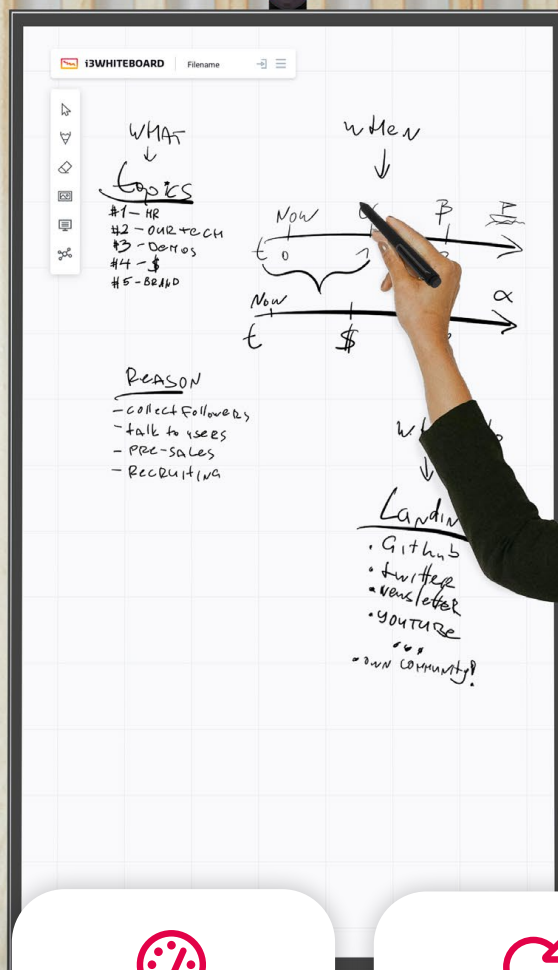 i3WHITEBOARD
Filename
WHAT
↓
topics
#1 – HR
#2 – OUR tECH
#3 – DEMOS
#4 – $
#5 – BRAND
WHEN
↓
NOW β
t 0 1
NOW α
t $
REASON
– collect Followers
– talk to users
– PRE-SALES
– RECRUItING
↓
· GitHub
· twitter
· Newsletter
· YOUTUBE
...
· OWN COMMUNITY!